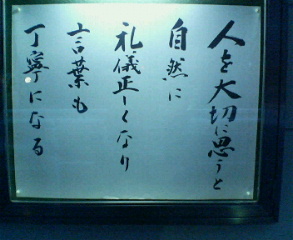 人を大切に思うと
自然に
礼儀正しくなり
言葉も
丁寧になる